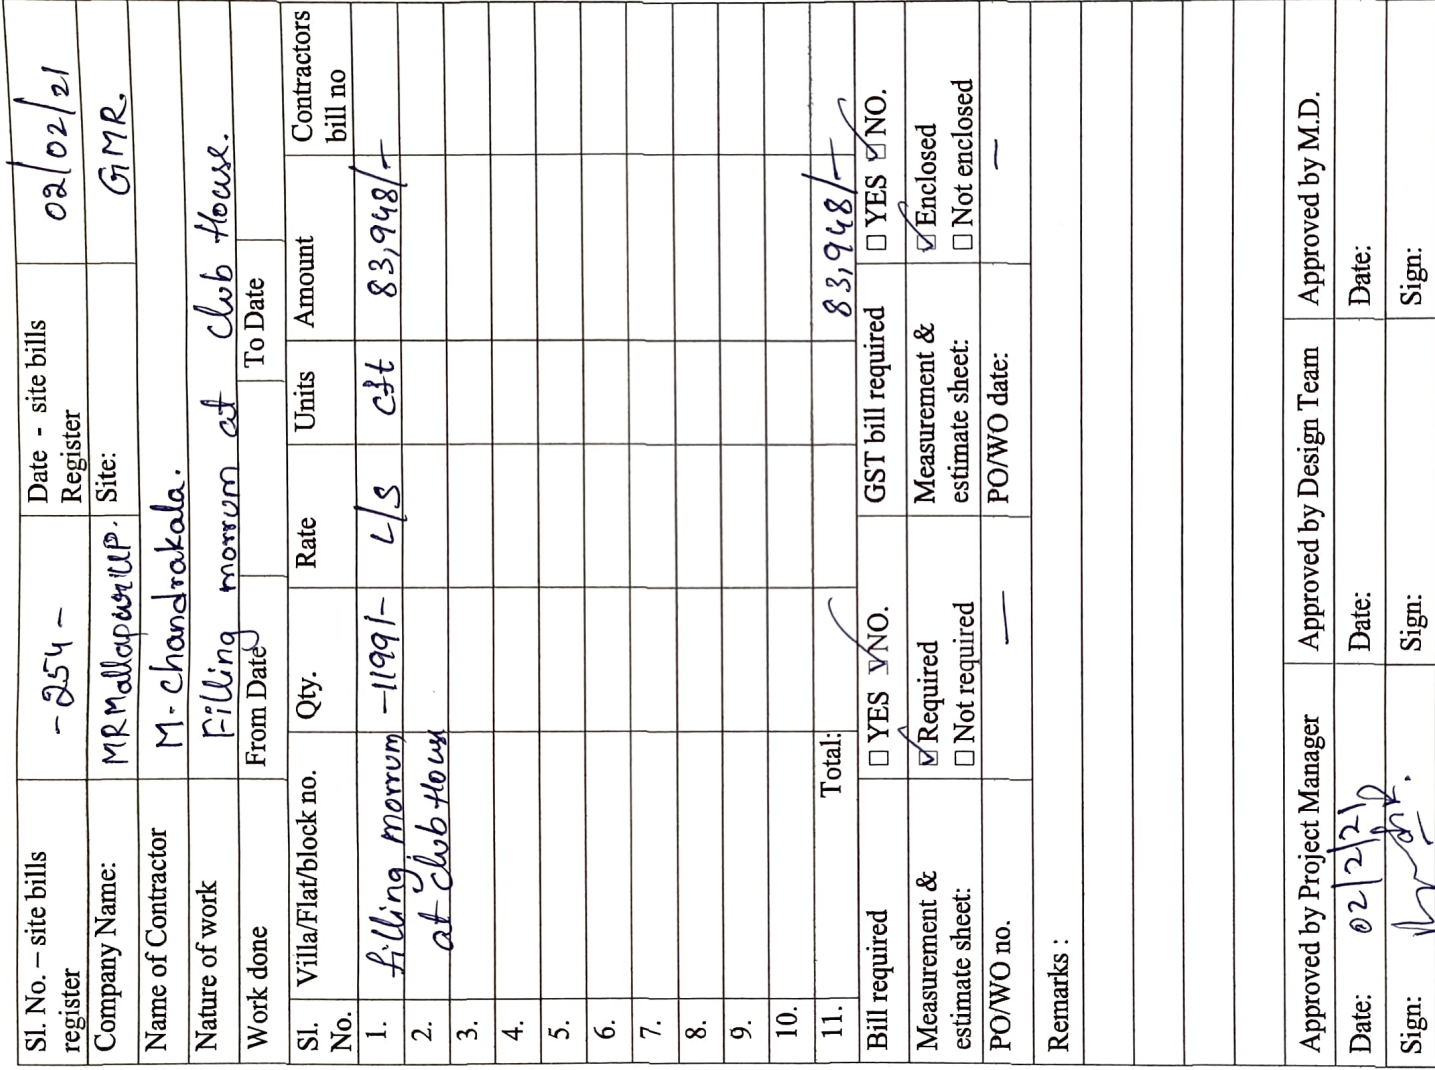 Sl. No. – site bills register
- 254 -
Date - site bills Register
02/02/21
Company Name:
MR Mallapur LLP.
Site:
GMR.
Name of Contractor
M. Chandrakala.
Nature of work
Filling morrum at Club House.
Work done
From Date
To Date
Sl. No.
Villa/Flat/block no.
Qty.
Rate
Units
Amount
Contractors bill no
1.
filling morrum
-11991-
L/S
cft
83,948/-
2.
at Club House
3.
4.
5.
6.
7.
8.
9.
10.
11.
Total:
83,948/-
Bill required
☐ YES ☑ NO.
GST bill required
☐ YES ☑ NO.
Measurement & estimate sheet:
☑ Required
☐ Not required
Measurement & estimate sheet:
☑ Enclosed
☐ Not enclosed
PO/WO no.
—
PO/WO date:
—
Remarks :
Approved by Project Manager
Approved by Design Team
Approved by M.D.
Date: 02/2/21
Date:
Date:
Sign:
Sign:
Sign: